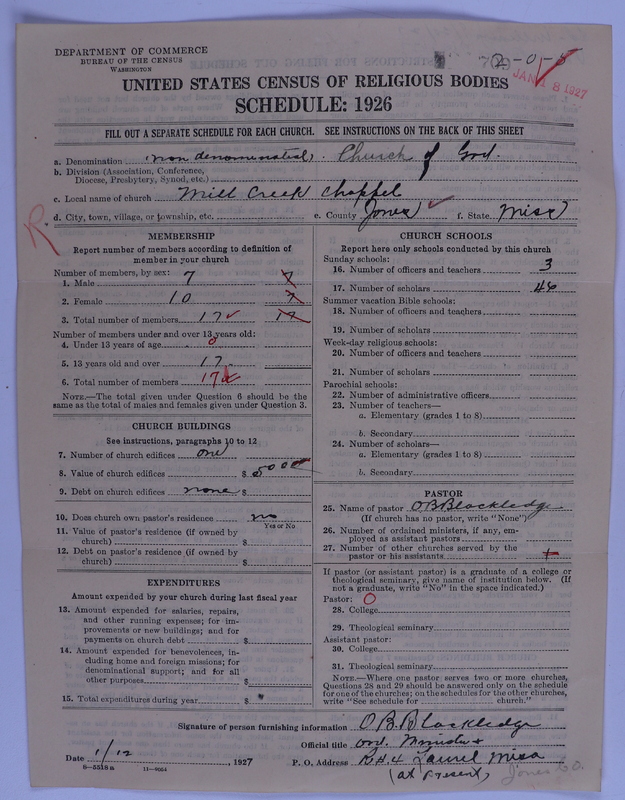 DEPARTMENT OF COMMERCE
BUREAU OF THE CENSUS
WASHINGTON
JAN 18 1927
UNITED STATES CENSUS OF RELIGIOUS BODIES
SCHEDULE: 1926
FILL OUT A SEPARATE SCHEDULE FOR EACH CHURCH. SEE INSTRUCTIONS ON THE BACK OF THIS SHEET
a. Denomination Church of God.
b. Division (Association, Conference, Diocese, Presbytery, Synod, etc.)
c. Local name of church Mill Creek Chappel
d. City, town, village, or township, etc. e. County Jones f. State Miss
R
MEMBERSHIP
Report number of members according to definition of member in your church
Number of members, by sex:
1. Male 7 7
2. Female 10 7
3. Total number of members 17 17
Number of members under and over 13 years old:
4. Under 13 years of age 0
5. 13 years old and over 17
6. Total number of members 17
NOTE.—The total given under Question 6 should be the same as the total of males and females given under Question 3.
CHURCH BUILDINGS
See instructions, paragraphs 10 to 12
7. Number of church edifices one
8. Value of church edifices $ 5000
9. Debt on church edifices none $
10. Does church own pastor's residence no
Yes or No
11. Value of pastor's residence (if owned by church) $
12. Debt on pastor's residence (if owned by church) $
EXPENDITURES
Amount expended by your church during last fiscal year
13. Amount expended for salaries, repairs, and other running expenses; for improvements or new buildings; and for payments on church debt $
14. Amount expended for benevolences, including home and foreign missions; for denominational support; and for all other purposes $
15. Total expenditures during year $
CHURCH SCHOOLS
Report here only schools conducted by this church
Sunday schools:
16. Number of officers and teachers 3
17. Number of scholars 46
Summer vacation Bible schools:
18. Number of officers and teachers
19. Number of scholars
Week-day religious schools:
20. Number of officers and teachers
21. Number of scholars
Parochial schools:
22. Number of administrative officers
23. Number of teachers—
a. Elementary (grades 1 to 8)
b. Secondary
24. Number of scholars—
a. Elementary (grades 1 to 8)
b. Secondary
PASTOR
25. Name of pastor O B Blackledge
(If church has no pastor, write "None")
26. Number of ordained ministers, if any, employed as assistant pastors
27. Number of other churches served by the pastor or his assistants
If pastor (or assistant pastor) is a graduate of a college or theological seminary, give name of institution below. (If not a graduate, write "No" in the space indicated.)
Pastor: 0
28. College
29. Theological seminary
Assistant pastor:
30. College
31. Theological seminary
NOTE.—Where one pastor serves two or more churches, Questions 28 and 29 should be answered only on the schedule for one of the churches; on the schedules for the other churches, write "See schedule for church."
Signature of person furnishing information O. B. Blackledge
Official title ord. Minister
Date 1/12, 1927 P. O. Address R # 4 Laurel Miss
(at Present) Jones Co.
8—5518a 11—9064